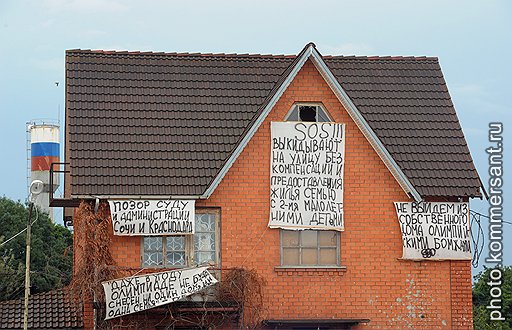 SOS!!!
ВЫКИДЫВАЮТ
НА УЛИЦУ БЕЗ
КОМПЕНСАЦИИ И
ПРЕДОСТАВЛЕНИЯ
ЖИЛЬЯ СЕМЬЮ
С 2-МЯ МАЛОЛЕТ
НИМИ ДЕТЬМИ
ПОЗОР СУДУ
И АДМИНИСТРАЦИИ
СОЧИ И КРАСНОДАРА
НЕ ВЫЙДЕМ ИЗ
СОБСТВЕННОГО
ДОМА ОЛИМПИЙ
СКИМИ БОМЖАМИ
ОЛИМПИАДЕ НЕ
СНЕСЕН ОДИН
photo.kommersant.ru